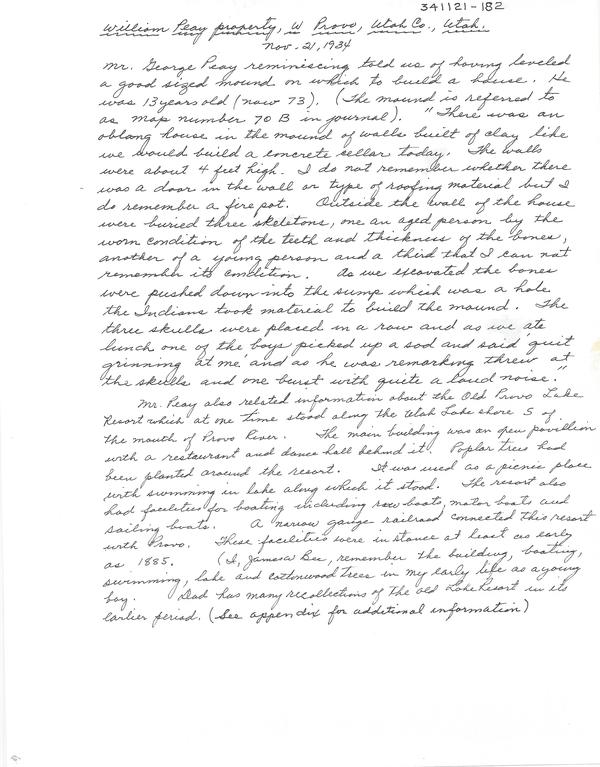 341121-182
William Peay property, W Provo, Utah Co., Utah.
Nov. 21, 1934
Mr. George Peay reminiscing told us of having leveled
a good sized mound on which to build a house. He
was 13 years old (now 73). (The mound is referred to
as map number 70 B in journal). "There was an
oblong house in the mound of walls built of clay like
we would build a concrete cellar today. The walls
were about 4 feet high. I do not remember whether there
was a door in the wall or type of roofing material but I
do remember a fire pot. Outside the wall of the house
were buried three skeletons, one an aged person by the
worn condition of the teeth and thickness of the bones,
another of a young person and a third that I can not
remember its condition. As we excavated the bones
were pushed down into the sump which was a hole
the Indians took material to build the mound. The
three skulls were placed in a row and as we ate
lunch one of the boys picked up a sod and said 'quit
grinning at me' and as he was remarking threw at
the skulls and one burst with quite a loud noise."
Mr. Peay also related information about the Old Provo Lake
Resort which at one time stood along the Utah Lake shore S of
the mouth of Provo River. The main building was an open pavillion
with a restaurant and dance hall behind it. Poplar trees had
been planted around the resort. It was used as a picnic place
with swimming in lake along which it stood. The resort also
had facilities for boating including row boats, motor boats and
sailing boats. A narrow gauge railroad connected this resort
with Provo. These facilities were in stance at least as early
as 1885. (I, James W Bee, remember the building, boating,
swimming, lake and cottonwood trees in my early life as a young
boy. Dad has many recollections of the old Lake Resort in its
earlier period. (See appendix for additional information)